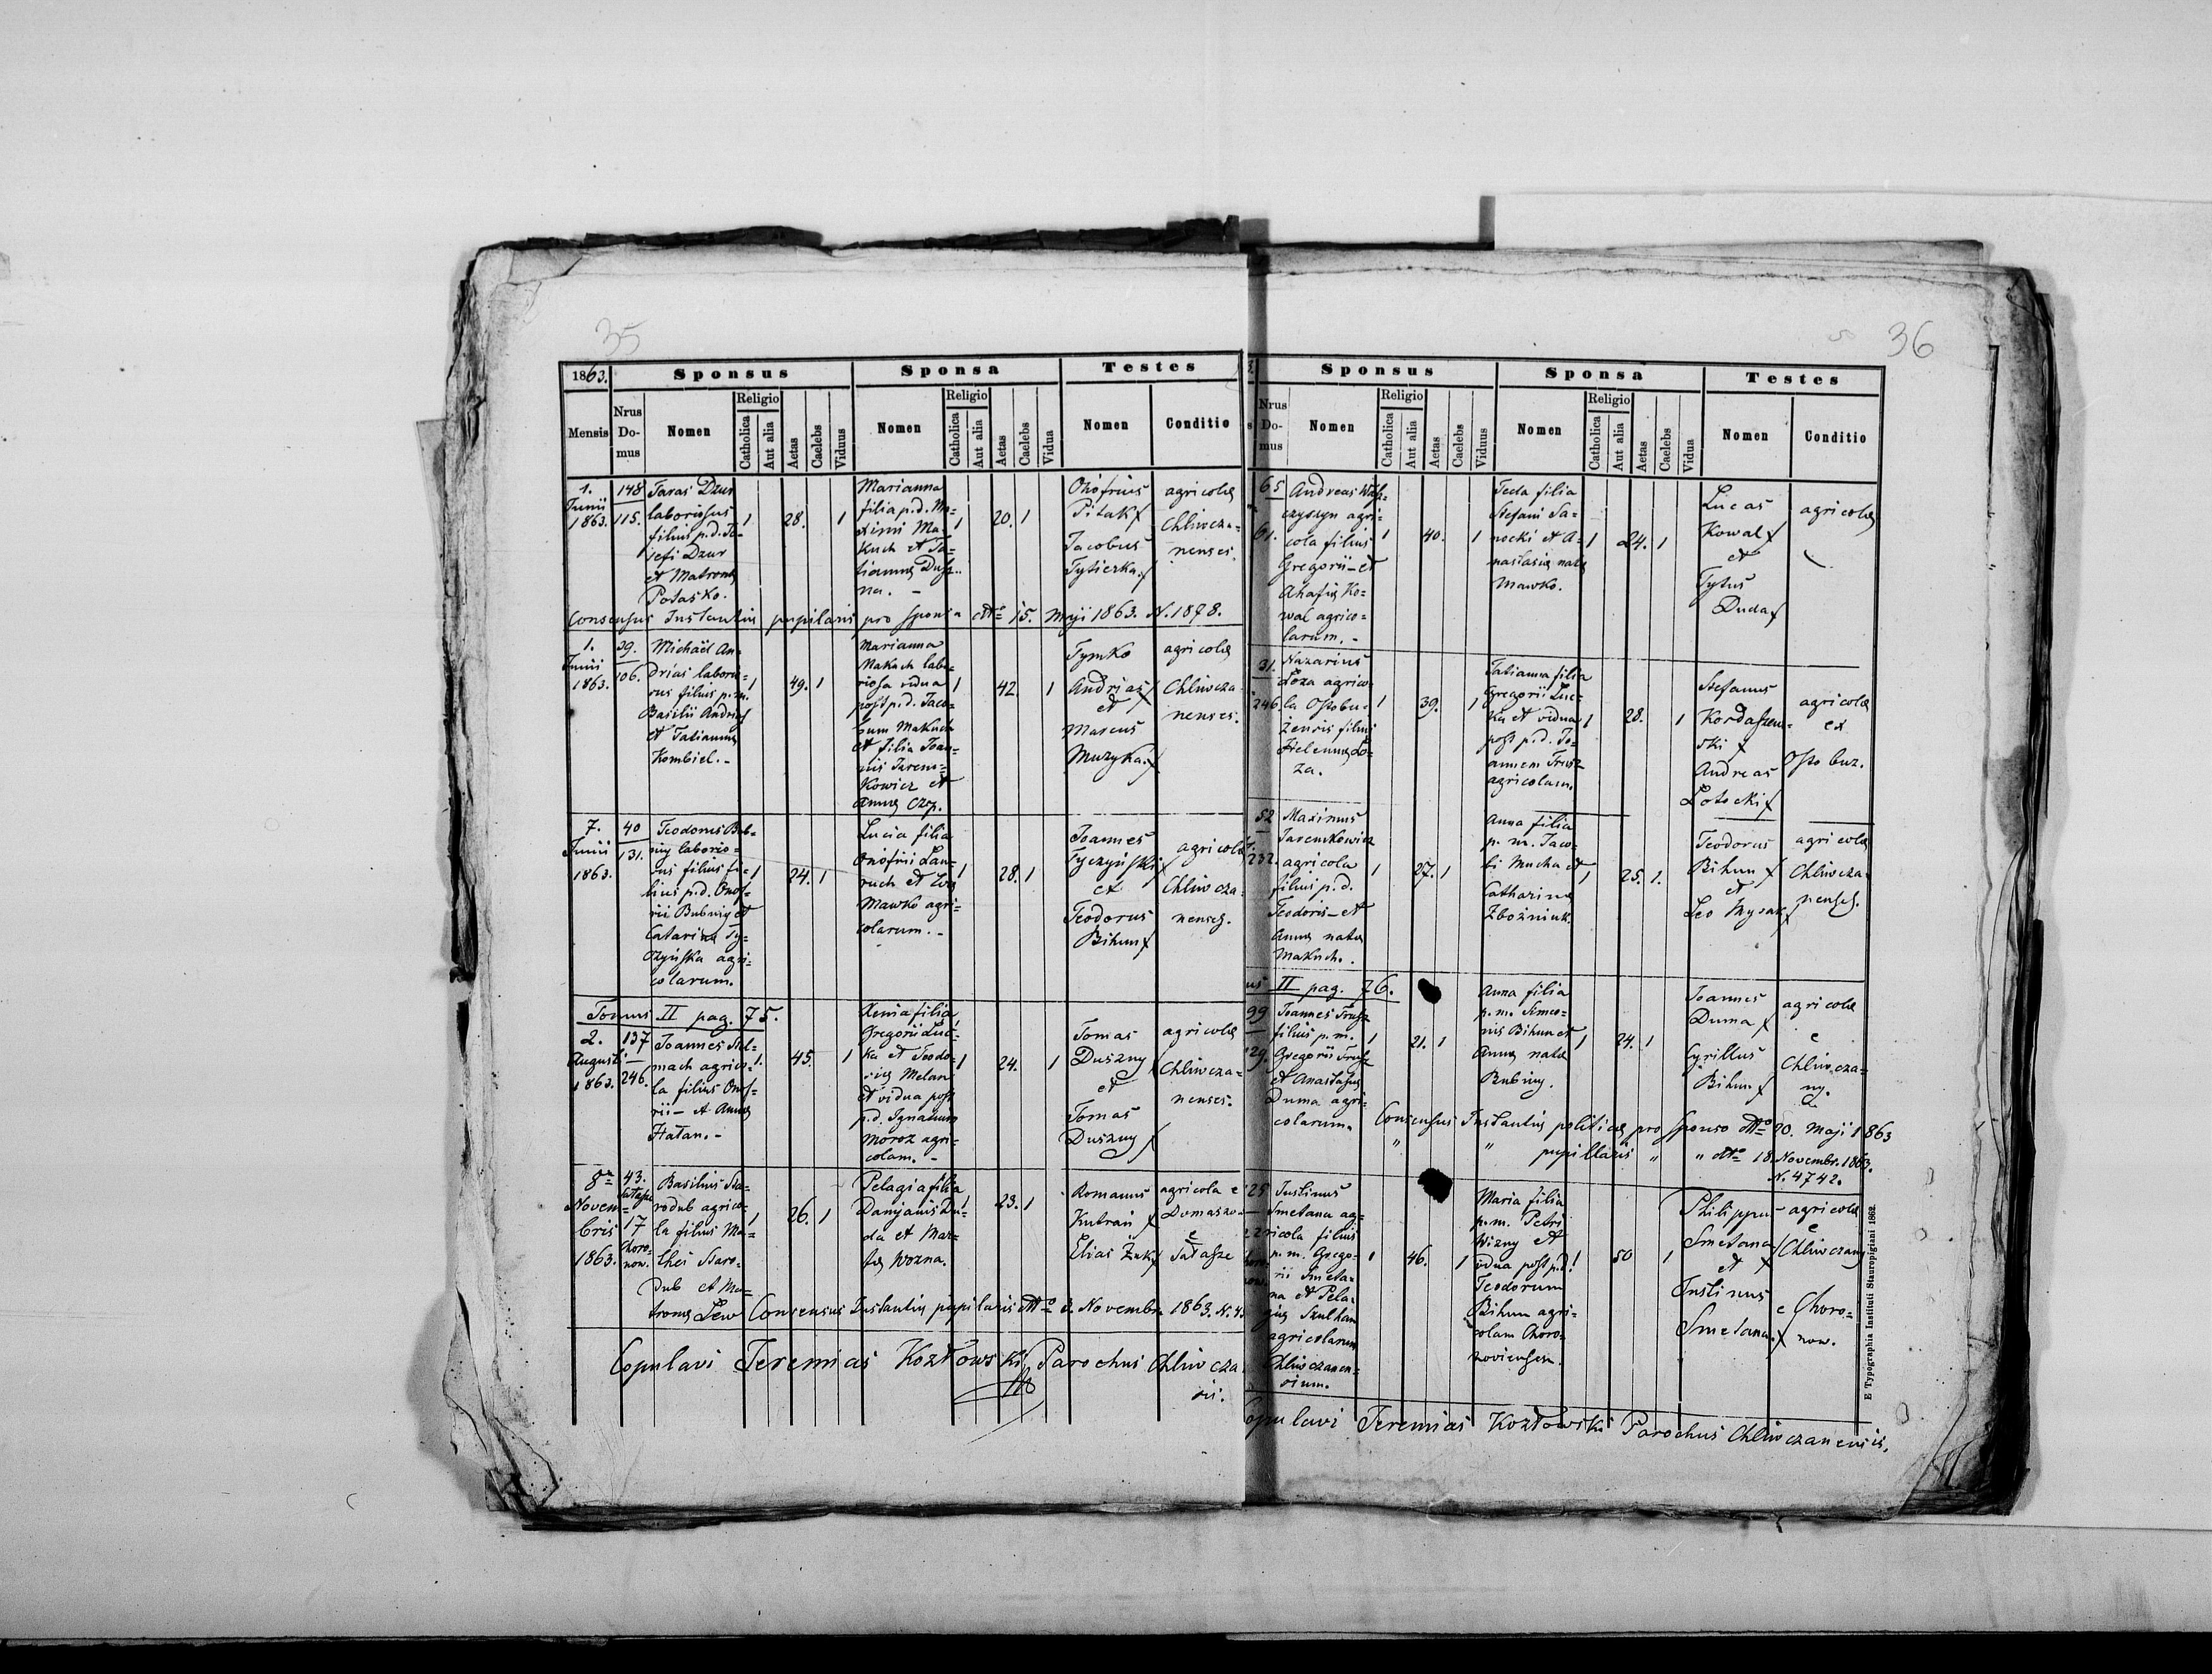 35
1863. Sponsus Sponsa Testes
Mensis Nrus Domus Nomen Religio Catholica Aut alia Aetas Caelebs Viduus Nomen Religio Catholica Aut alia Aetas Caelebs Vidua Nomen Conditio
1. Junii 1863.
148
115.
Taras Dzur
laboriosus
filius p.d. Jo=
sefi Dzur
et Matrona
Potasko.
1 28. 1
Marianna
filia p.d. Ma=
ximi Ma=
kuch et Ta=
tianna
na. -
1 20. 1
Onofrius
Pitak
Jacobus
Tyticzka.
agricolae
Chliwcza=
nenses.
Consensus Instantiae pupilaris pro sponsa dtto 15. Maji 1863. N. 1878.
1. Junii 1863.
39.
106.
Michaël An=
drias laborio=
sus filius p.m.
Basilii Andrias
et Tatianna
Kombiel. -
1 49. 1
Marianna
Makuch labo=
riosa vidua
post p.d. Jaco=
bum Makuch
et filia Joan=
nis Jarem=
kowicz et
Anna Czop.
1 42. 1
Tymko
Andrias
et
Marcus
Muzyka.
agricolae
Chliwcza
nenses.
7. Junii 1863.
40
131.
Teodorus Bub=
niy laborio=
sus filius fi=
lius p.d. Onof=
rii Bubniy et
Catarina Ty=
czyńska agri=
colarum.
1 24. 1
Lucia filia
Onofrii Lau=
ruch et Eva
Mawko agri=
colarum. -
1 28. 1
Joannes
Tyczyński
et
Teodorus
Bihun
agricolae
Chliwcza=
nenses.
Tomus II pag. 75.
2. Augusti 1863.
137
246.
Joannes Stel=
mach agrico=
la filius Onof=
rii - et Anna
Hatan. -
1. 45. 1
Xenia filia
Gregorii Luc=
ka et Teodo=
ria Melan
et vidua post
p.d. Ignatium
Moroz agri=
colam. -
1 24. 1
Tomas
Duszny
et
Tomas
Duszny
agricolae
Chliwcza=
nenses.
8va Novem=
bris
1863.
43.
17
Choro=
now.
Basilius Sta=
rodub agrico=
la filius Ma=
thei Staro=
dub et Ma=
trona Lew
1 26. 1
Pelagia filia
Damjanis Du=
da et Mar=
ta Wozna.
1 23. 1
Romanus
Kutran
Elias Żuk
agricola e
Domaszo=
e
Sałasze
Consensus Instantiae pupilaris dtto 3. Novembr. 1863. N. 4
Copulavi Jeremias Kozłowski Parochus Chliwcza=
nsis.
36
Sponsus Sponsa Testes
Nrus Domus Nomen Religio Catholica Aut alia Aetas Caelebs Viduus Nomen Religio Catholica Aut alia Aetas Caelebs Vidua Nomen Conditio
65
61.
Andreas
czyszyn agri=
cola filius
Gregorii - et
Ahafia Ko=
wal agrico=
larum. -
1 40. 1
Tecla filia
Stefani Sa=
nocki et A=
nastasia nata
Mawko.
1 24. 1
Lucas
Kowal
et
Tytus
Duda
agricolae
31.
246.
Nazarius
Łoza agrico=
la Ostobu=
żensis filius
Helenna Ło=
za.
1 39. 1
Tatianna filia
Gregorii Luc=
ka et vidua
post p.d. Jo=
annem Trusz
agricolam.
1 28. 1
Stefanus
Kordaszew=
ski
Andreas
Łotocki
agricolae
ex
Osto buz.
52
232.
Maximus
Jaremkowicz
agricola
filius p.d.
Teodoris - et
Anna nata
Makuch.
1 27. 1
Anna filia
p.m. Jaco=
bi Mucha et
Catharina
Zbożniuk.
1 25. 1.
Teodorus
Bihun
et
Leo Mysak
agricolae
Chliwcza=
nenses.
us II pag. 76.
99
29.
Joannes Trusz
filius p.m.
Gregorii Trusz
et Anastasia
Duma agri=
colarum.
1 21. 1
Anna filia
p.m. Simeo=
nis Bihun et
Anna nata
Bubniy.
1 24. 1
Joannes
Duma
Cyrillus
Bihun
agricolae
e
Chliwcza=
ny.
Consensus Instantiae politicae pro sponso dtto 20. Maji 1863
" " pupillaris " " dtto 18. Novembr. 1863.
N. 4742.
25
Justinus
Smetana ag=
ricola filius
p.m. Grego=
rii Smeta=
na et Pela=
gia Skulhan
agricolarum
Chliwczanen=
sium.
1 46. 1
Maria filia
p.m. Petri
Wizny et
vidua post p.d.
Teodorum
Bihun agri=
colam Choro=
noviensem.
1 50 1
Philippus
Smetana
et
Justinus
Smetana.
agricolae
e
Chliwczany
e Choro=
now.
Copulavi Jeremias Kozłowski Parochus Chliwczanensis.
E Typographia Instituti Stauropigiani 1862.